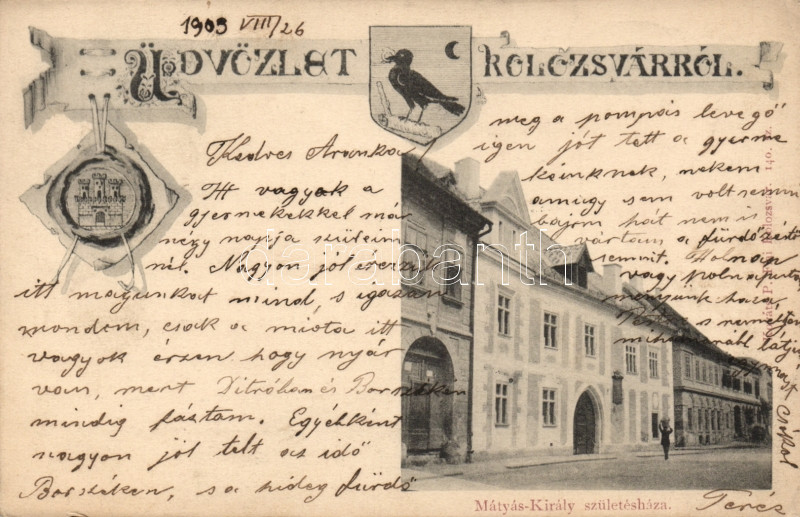 1903 VIII/26
ÜDVÖZLET KOLOZSVÁRRÓL.
Kedves Aranka
Itt vagyok a
gyermekekkel má
négy napja szüleim
nél. Nagyon jól érezzük
itt magunkat mind, s igazán
mondom, csak a mióta itt
vagyok érzem hogy nyár
van, mert Ditróban és Borszéken
mindig fáztam. Egyébként
nagyon jól telt az idő
Borszéken, s a hideg fürdő
meg a pompás levegő
igen jót tett a gyerme
keinknek, nekem
amúgy sem volt semmi
bajom hát nem is
vártam a fürdőzéstől
semmit. Holnap
vagy holnapután
megyünk haza,
csókol
Teréz
Mátyás-Király születésháza.
darabanth